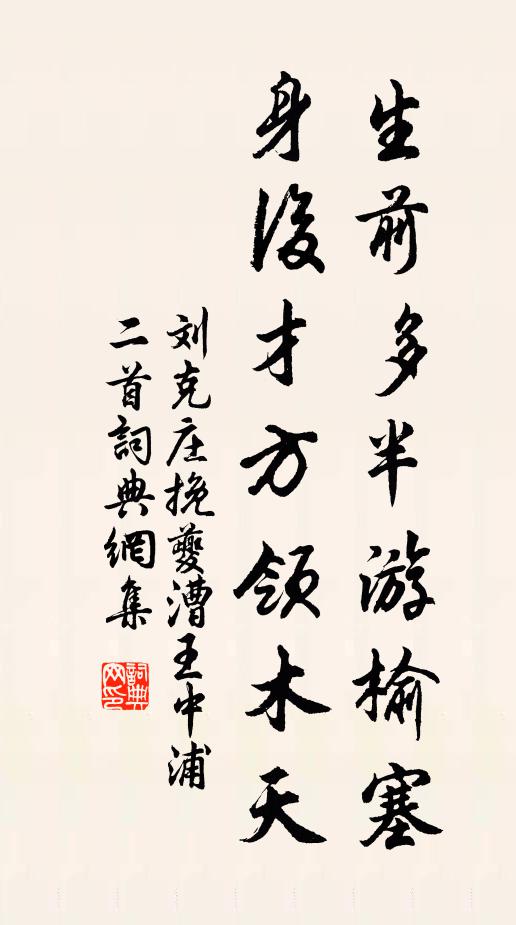 生前多半游榆塞
身後才方領木天
刘克庄挽夔漕王中浦
二首詞典網集
詞典网印